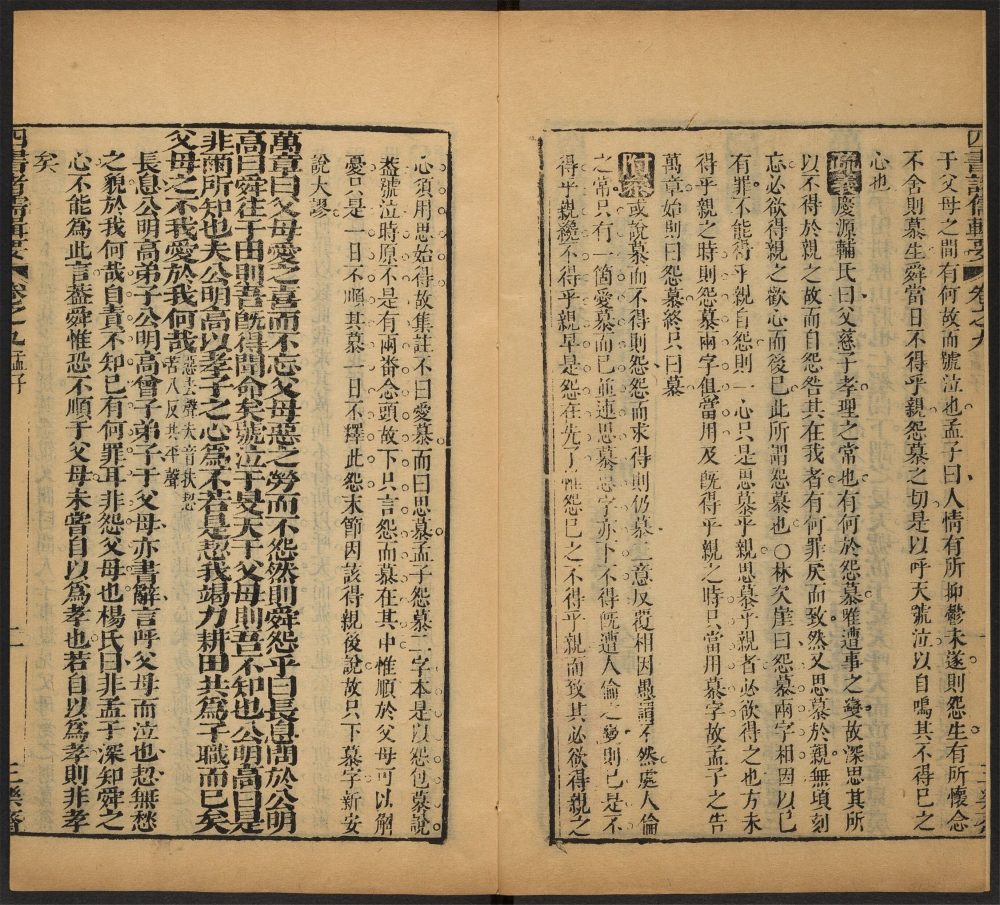 四書諸儒輯要 卷之九
于父母之間有何故而號泣也孟子曰人情有所抑鬱未遂則怨生有所懷念
不舍則慕生舜當日不得乎親怨慕之切是以呼天號泣以自鳴其不得已之
心也
疏義慶源輔氏曰父慈子孝理之常也有何於怨慕雖遭事之變故深思其所
以不得於親之故而自怨咎其在我者有何罪戾而致然又思慕於親無頃刻
忘必欲得親之歡心而後已此所謂怨慕也〇林次崖曰怨慕兩字相因以已
有罪不能得乎親自怨則一心只是思慕乎親思慕乎親者必欲得之也方未
得乎親之時則怨慕兩字俱當用及旣得乎親之時只當用慕字故孟子之告
萬章始則曰怨慕終只曰慕
附參或說慕而不得則怨怨而求得則仍慕二意反復相因愚謂不然處人倫
之常只有一箇愛慕而已並連思慕思字亦下不得旣遭人倫之變則已是不
得乎親纔不得乎親早是怨在先了惟怨已之不得乎親而致其必欲得親之
心須用思始得故集註不曰愛慕而曰思慕孟子怨慕二字本是以怨包慕說
蓋號泣時原不是有兩番念頭故下只言怨而慕在其中惟順於父母可以解
憂只是一日不順其慕一日不釋此怨末節因該得親後說故只下慕字新安
說大謬
萬章曰父母愛之喜而不忘父母惡之勞而不怨然則舜怨乎曰長息問於公明
高曰舜往于田則吾旣得聞命矣號泣于旻天于父母則吾不知也公明高曰是
非爾所知也夫公明高以孝子之心爲不若是恝我竭力耕田共爲子職而已矣
父母之不我愛於我何哉 惡去聲夫音扶恝
苦八反共平聲
長息公明高弟子公明高曾子弟子于父母亦書辭言呼父母而泣也恝無愁
之貌於我何哉自責不知已有何罪耳非怨父母也楊氏曰非孟子深知舜之
心不能爲此言蓋舜惟恐不順于父母未嘗自以爲孝也若自以爲孝則非孝
矣
四書諸儒輯要 卷之九 孟子 二 三樂齋